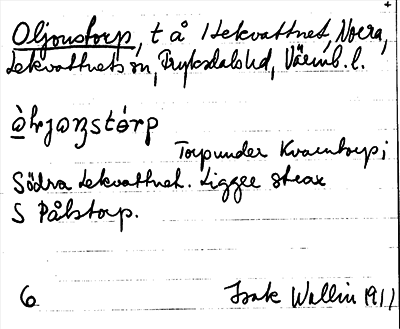 Oljonstorp, t å Lekvattnet, Norra,
Lekvattnets sn, Fryksdals hd, Värml. l.
Torp under Kvarntorp;
Södra Lekvattnet. Ligger strax
S Pålstorp.
6 Isak Wallin 1917